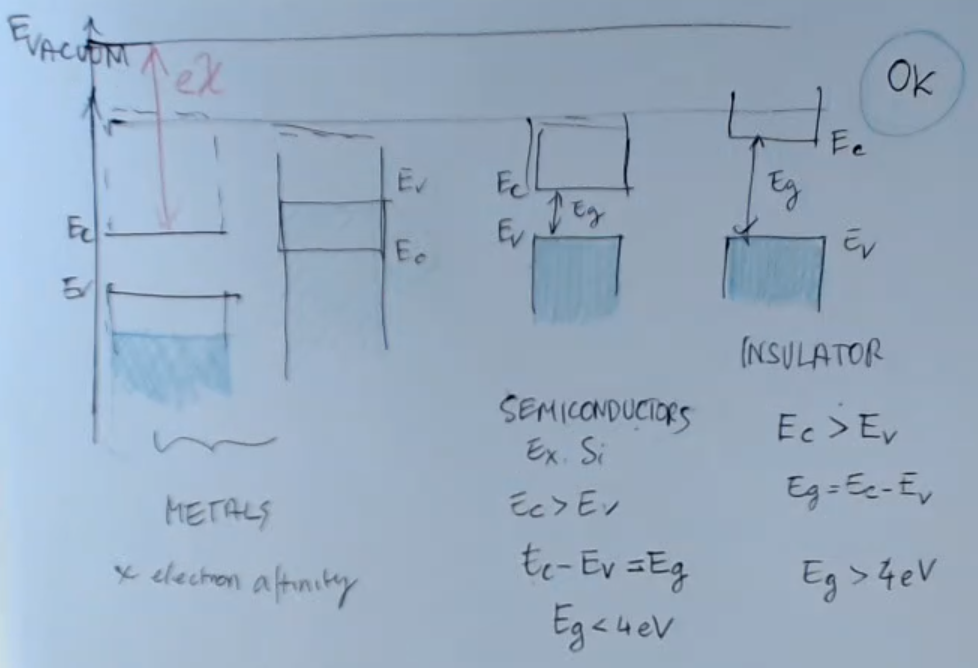 EVACUUM
eχ
OK
Ec
Ev
Ev
Ec
Ec
Eg
Ev
Ec
Eg
Ev
METALS
x electron affinity
SEMICONDUCTORS
Ex. Si
Ec > Ev
Ec - Ev = Eg
Eg < 4eV
INSULATOR
Ec > Ev
Eg = Ec - Ev
Eg > 4eV